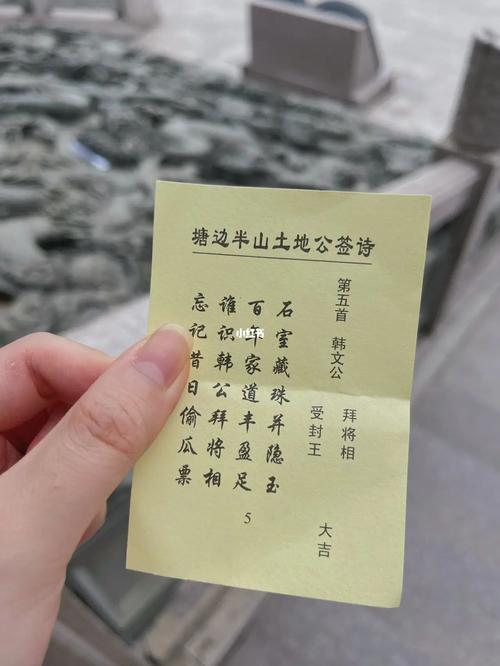 塘边半山土地公签诗
第五首 韩文公
拜将相
受封王
大吉
石室藏珠并隐玉
百年家道丰盈足
谁识韩公拜将相
忘记昔日偷瓜票
5
小红书